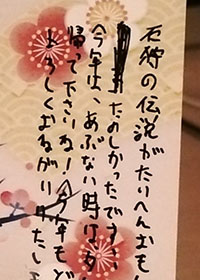 石狩の伝説がたいへんおも
たのしかったです!
今年は、あぶない時はす
帰って下さいね!今年もど
よろしくおねがいいたし